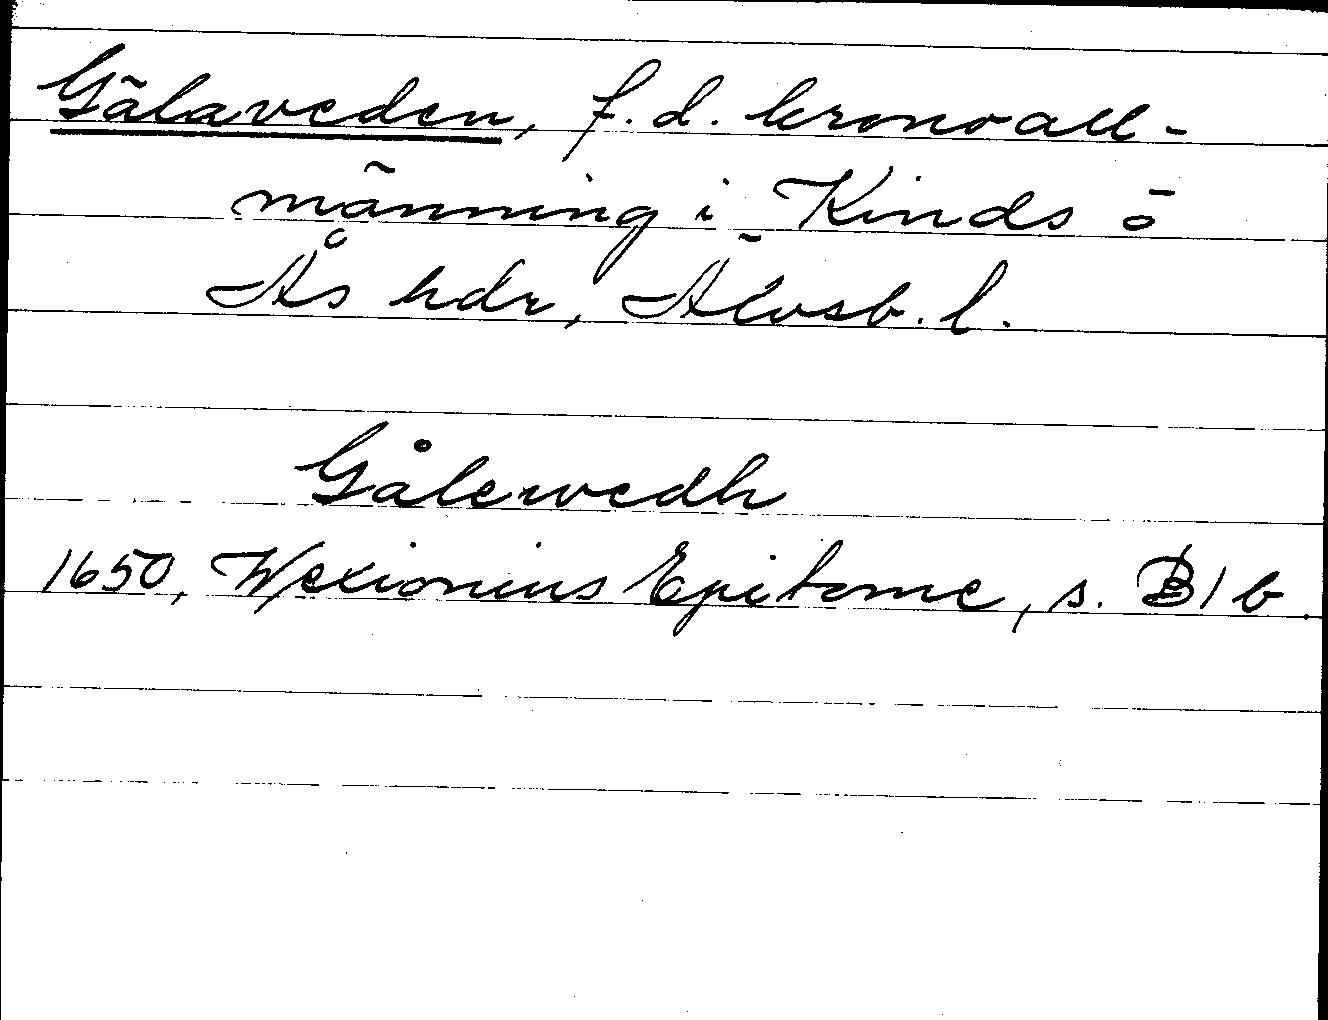 Gälaveden, f.d. kronoall-
männing i Kinds o
Ås hdr, Älvsb. l.
Gålewedh
1650, Wexionius Epitome, s. B1b.